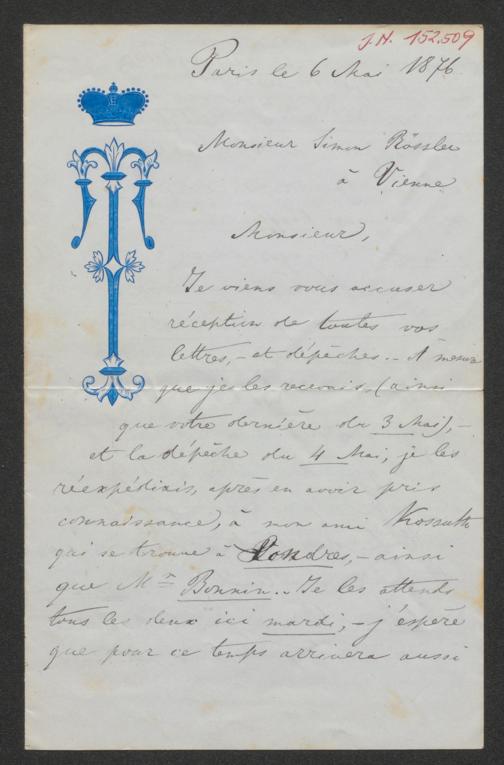 J.N. 152.509
Paris le 6 Mai 1876.
Monsieur Simon Rössler
à Vienne
Monsieur,
Je viens vous accuser
réception de toutes vos
lettres, - et dépêches. - A mesure
que je les recevais, (ainsi
que votre dernière du 3 Mai), -
et la dépêche du 4 Mai, je les
réexpédiais, après en avoir pris
connaissance, à mon ami Kossuth
qui se trouve à Londres, - ainsi
que Mr Bonnin. - Je les attends
tous les deux ici mardi, - j'espère
que pour ce temps arrivera aussi